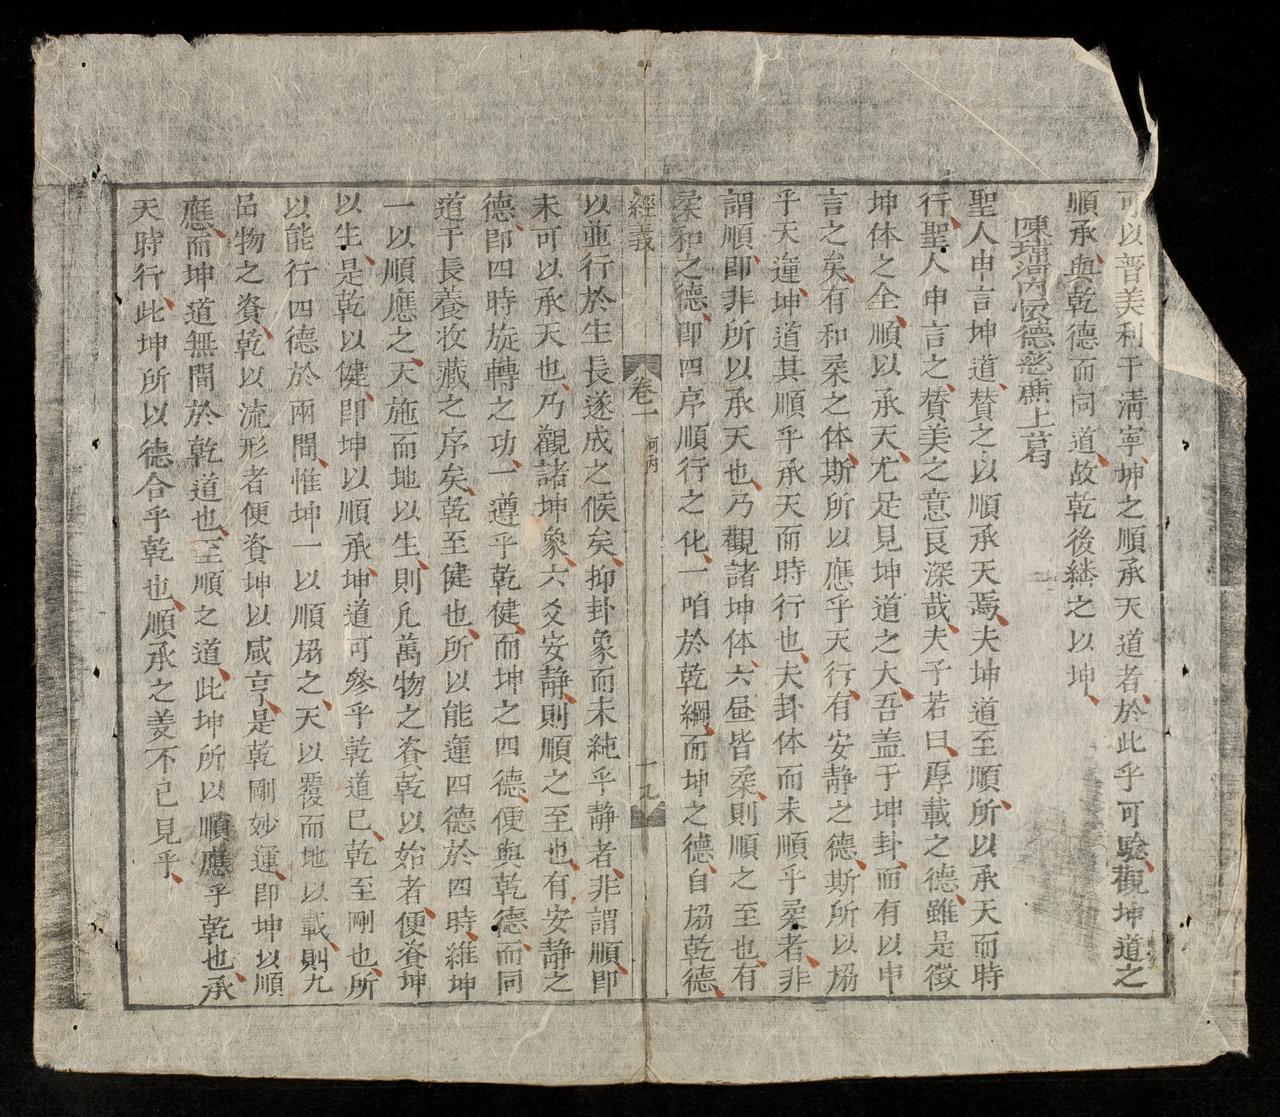 可以普美利于淸寧、坤之順承天道者、於此乎可驗、觀坤道之
順承、與乾德而同道、故乾後繼之以坤、
陳瑞河內懷德慈廉上葛
聖人申言坤道、賛之以順承天焉、夫坤道至順、所以承天而時
行、聖人申言之、賛美之意㫐深哉、夫子若曰、厚載之德、雖是徵
坤体之全、順以承天、尤足見坤道之大、吾盖于坤卦而有以申
言之矣、有和柔之体、斯所以應乎天行、有安静之德、斯所以協
乎天運、坤道其順乎承天而時行也、夫卦体而未順乎柔者、非
謂順、卽非所以承天也、乃觀諸坤体、六𠁅皆柔、則順之至也、有
柔和之德、卽四序順行之化、一咱於乾綱、而坤之德、自協乾德、
經義 卷一 河內 十九
以並行於生長遂成之候矣、抑卦象而未純乎静者、非謂順、卽
未可以承天也、乃觀諸坤象、六爻安静、則順之至也、有安静之
德、卽四時旋轉之功、一遵乎乾健、而坤之四德、便與乾德而同
道于長養收藏之序矣、乾至健也、所以能運四德於四時、維坤
一以順應之、天施而地以生、則凡萬物之資、乾以始者、便資坤
以生、是乾以健、卽坤以順承、坤道可參乎乾道已、乾至剛也、所
以能行四德於兩間、惟坤一以順協之、天以覆而地以載、則凡
品物之資、乾以流形者、便資坤以咸亨、是乾剛妙運、卽坤以順
應、而坤道無間於乾道也、至順之道、此坤所以順應乎乾也、承
天時行、此坤所以德合乎乾也、順承之義不已見乎、